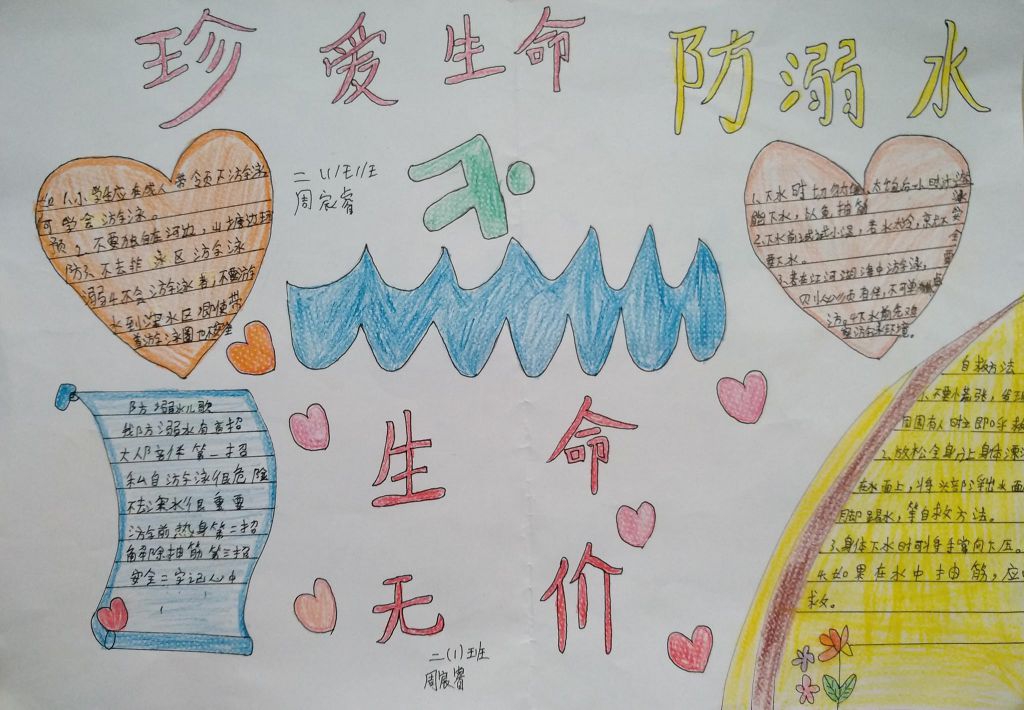 珍爱生命 防溺水
二(1)班
周宸睿
1.小学生应在成人带领下游泳
学会游泳。
2.不要独自在河边,山塘边玩
3.不去非泳区游泳
4.不会游泳者,不要游
到深水区,即使带
着游泳圈也不安全
如何预防溺水
1.下水时切勿
能下水,以免抽筋
2.下水前试试水温,若水太冷,就不
要下水。
3.若在江河湖海中游泳,
必须有伴,不可单独
游。4.下水前
防溺水儿歌
我防溺水有高招
大人陪伴第一招
私自游泳很危险
不去深水很重要
游前热身第二招
解除抽筋第三招
安全二字记心中
生命
无价
二(1)班
周宸睿
自救方法
1.不要慌张,发现
周围有人时立即呼救
2.放松全身,让身体漂浮
在水面上,将头部浮出水面
用脚踢水,等自救方法。
3.身体下水时可将手掌向下压。
4.如果在水中抽筋,应
救。